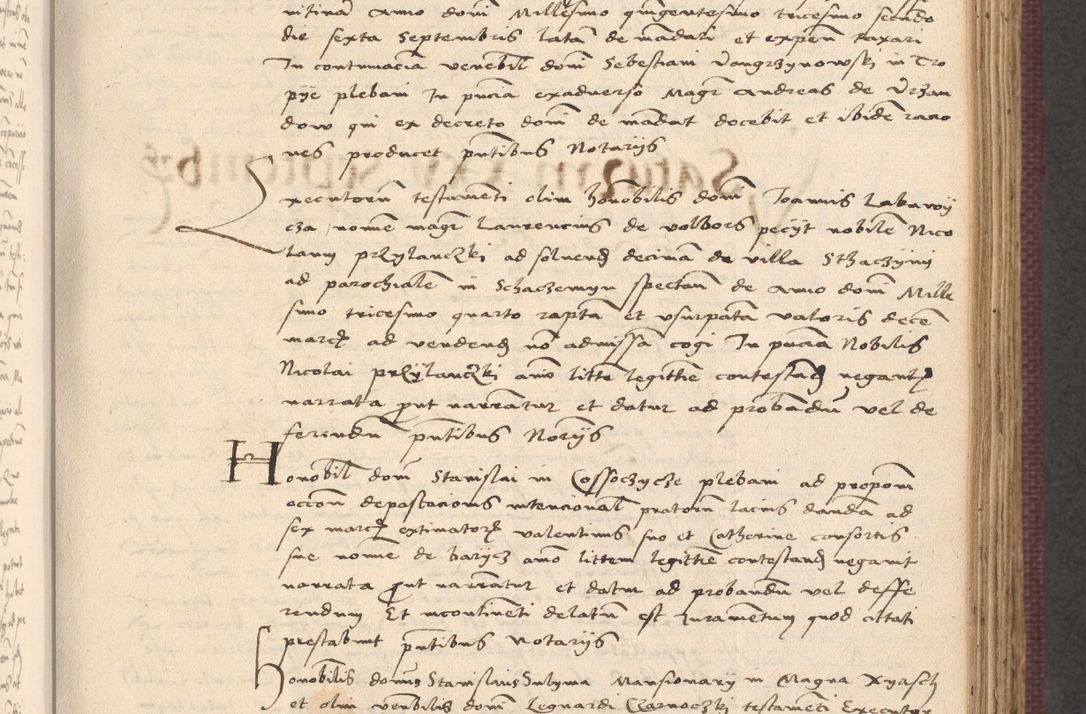 nitina Anno domi Millesimo quingentesimo tricesimo secundo
die sexta Septembris lata de mandari et expen taxari
In contumacia venebil domi Sebestiani Vangrzynowski in Tro
pye plebani In pncia exadverso Magr Andreas de Vrzan
dow qui ex decreto domi de mandat docebit et ibide racio
nes producet pntibus Notariis
Executoru testamenti olim honobilis dom Joannis Labawy
cza nomine magr Laurencius de wolbors peciit nobilem Nico
laum przylanczki ad solvend decima de villa Sthaczyny
ad parochiale in Schaczemyn spectan de Anno domi Mille
simo tricesimo quarto rapta et usurpata valoris dece
marcz ad vendend no admissa cogi In pncia Nobilis
Nicolai przylanczki ano litte legittie contestad negantz
narrata put narratur et datur ad probandu vel de
ferendu pntibus Noriis
Honobil domi Stanislai in Cossoczycze plebani ad propom
accom depastacionis intencional pratoru lacius danda ad
sex marcz extinatoz valentinus suo et Catherine consortis
sue nomine de barycz ano littem legittie contestand negavit
narrata put narratur et datur ad probandu vel deffe
rendum Et incontinenti delatu est Juramentum quod attati
prestabunt pntibus Notariis
Honobilis domus Stanislaus Sulyma Mansionary in Magna Xyasch
et olim venbilis domi Leonardi Czarnoczki testamenti Executor